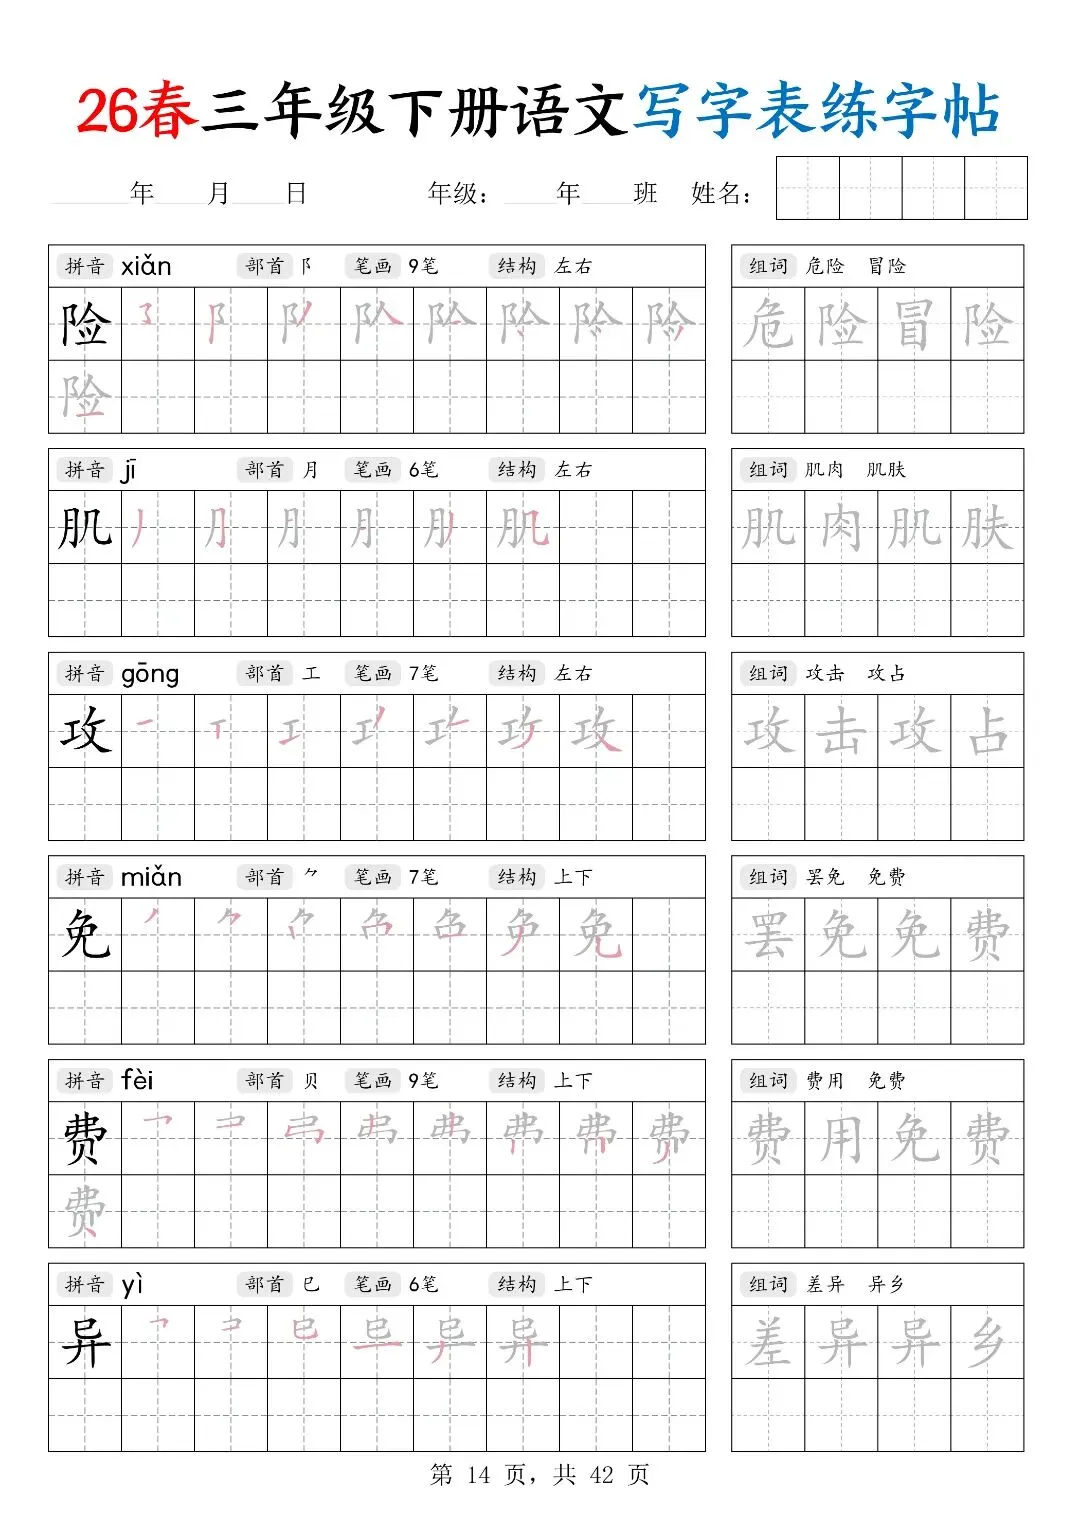 26春三年级下册语文写字表练字帖
年 月 日 年级: 年 班 姓名:
拼音 xiǎn 部首 阝 笔画 9笔 结构 左右 组词 危险 冒险
险 危险冒险
险
拼音 jī 部首 月 笔画 6笔 结构 左右 组词 肌肉 肌肤
肌 肌肉肌肤
拼音 gōng 部首 工 笔画 7笔 结构 左右 组词 攻击 攻占
攻 攻 攻击攻占
拼音 miǎn 部首 ⺈ 笔画 7笔 结构 上下 组词 罢免 免费
免 免 罢免免费
拼音 fèi 部首 贝 笔画 9笔 结构 上下 组词 费用 免费
费 费用免费
费
拼音 yì 部首 巳 笔画 6笔 结构 上下 组词 差异 异乡
异 异 差异异乡
第 14 页，共 42 页